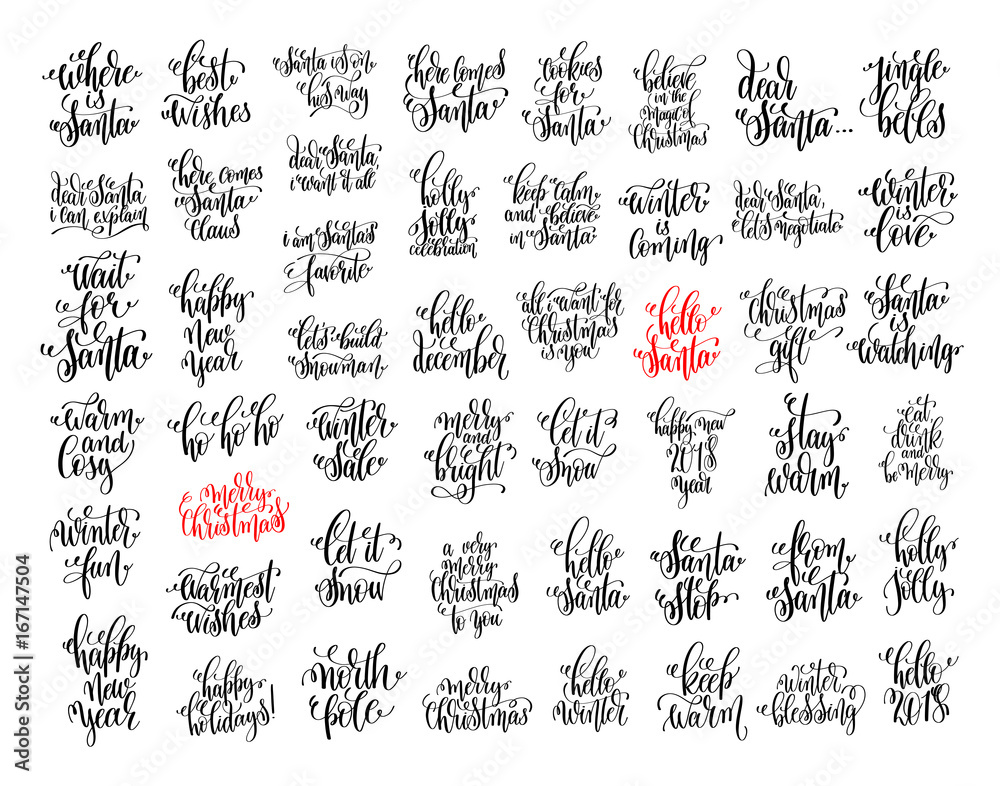 where
is
Santa
best
wishes
Santa is on
his way
here comes
Santa
cookies
for
Santa
believe
in the
magic of
Christmas
dear
Santa...
jingle
bells
dear Santa
i can explain
here comes
Santa
Claus
dear Santa,
i want it all
holly
jolly
celebration
keep calm
and believe
in Santa
winter
is
coming
dear Santa,
let's negotiate
winter
is
love
i am Santa's
favorite
wait
for
Santa
happy
New
year
let's build
Snowman
hello
december
all i want for
Christmas
is you
hello
Santa
Christmas
gift
Santa
is
watching
warm
and
Cosy
ho ho ho
winter
Sale
merry
and
bright
let it
Snow
happy new
2018
year
stay
warm
eat
drink
and
be merry
merry
Christmas
winter
fun
warmest
wishes
let it
Snow
a very
merry
Christmas
to you
hello
Santa
Santa
Stop
from
Santa
holly
jolly
happy
New
year
happy
holidays!
north
pole
merry
Christmas
hello
winter
keep
warm
winter
blessing
hello
2018
Adobe Stock | #167147504